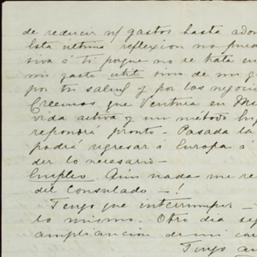 de reducir n/ gastos hasta ado
Esta ultima reflexion no pue
siva á ti porque no se trata
mi gasto util sino de mi
por tu salud y por los negoci
Creemos que Ventura en
vida activa y un método hig
repondrá pronto. Pasada la
podrá regresar á Europa á
der lo necesario —
Empleo. Aún nada me re
del Consulado — !
Tengo que interrumpir —
lo mismo. Otro dia seg
ampliacion de mi ca
Tengo